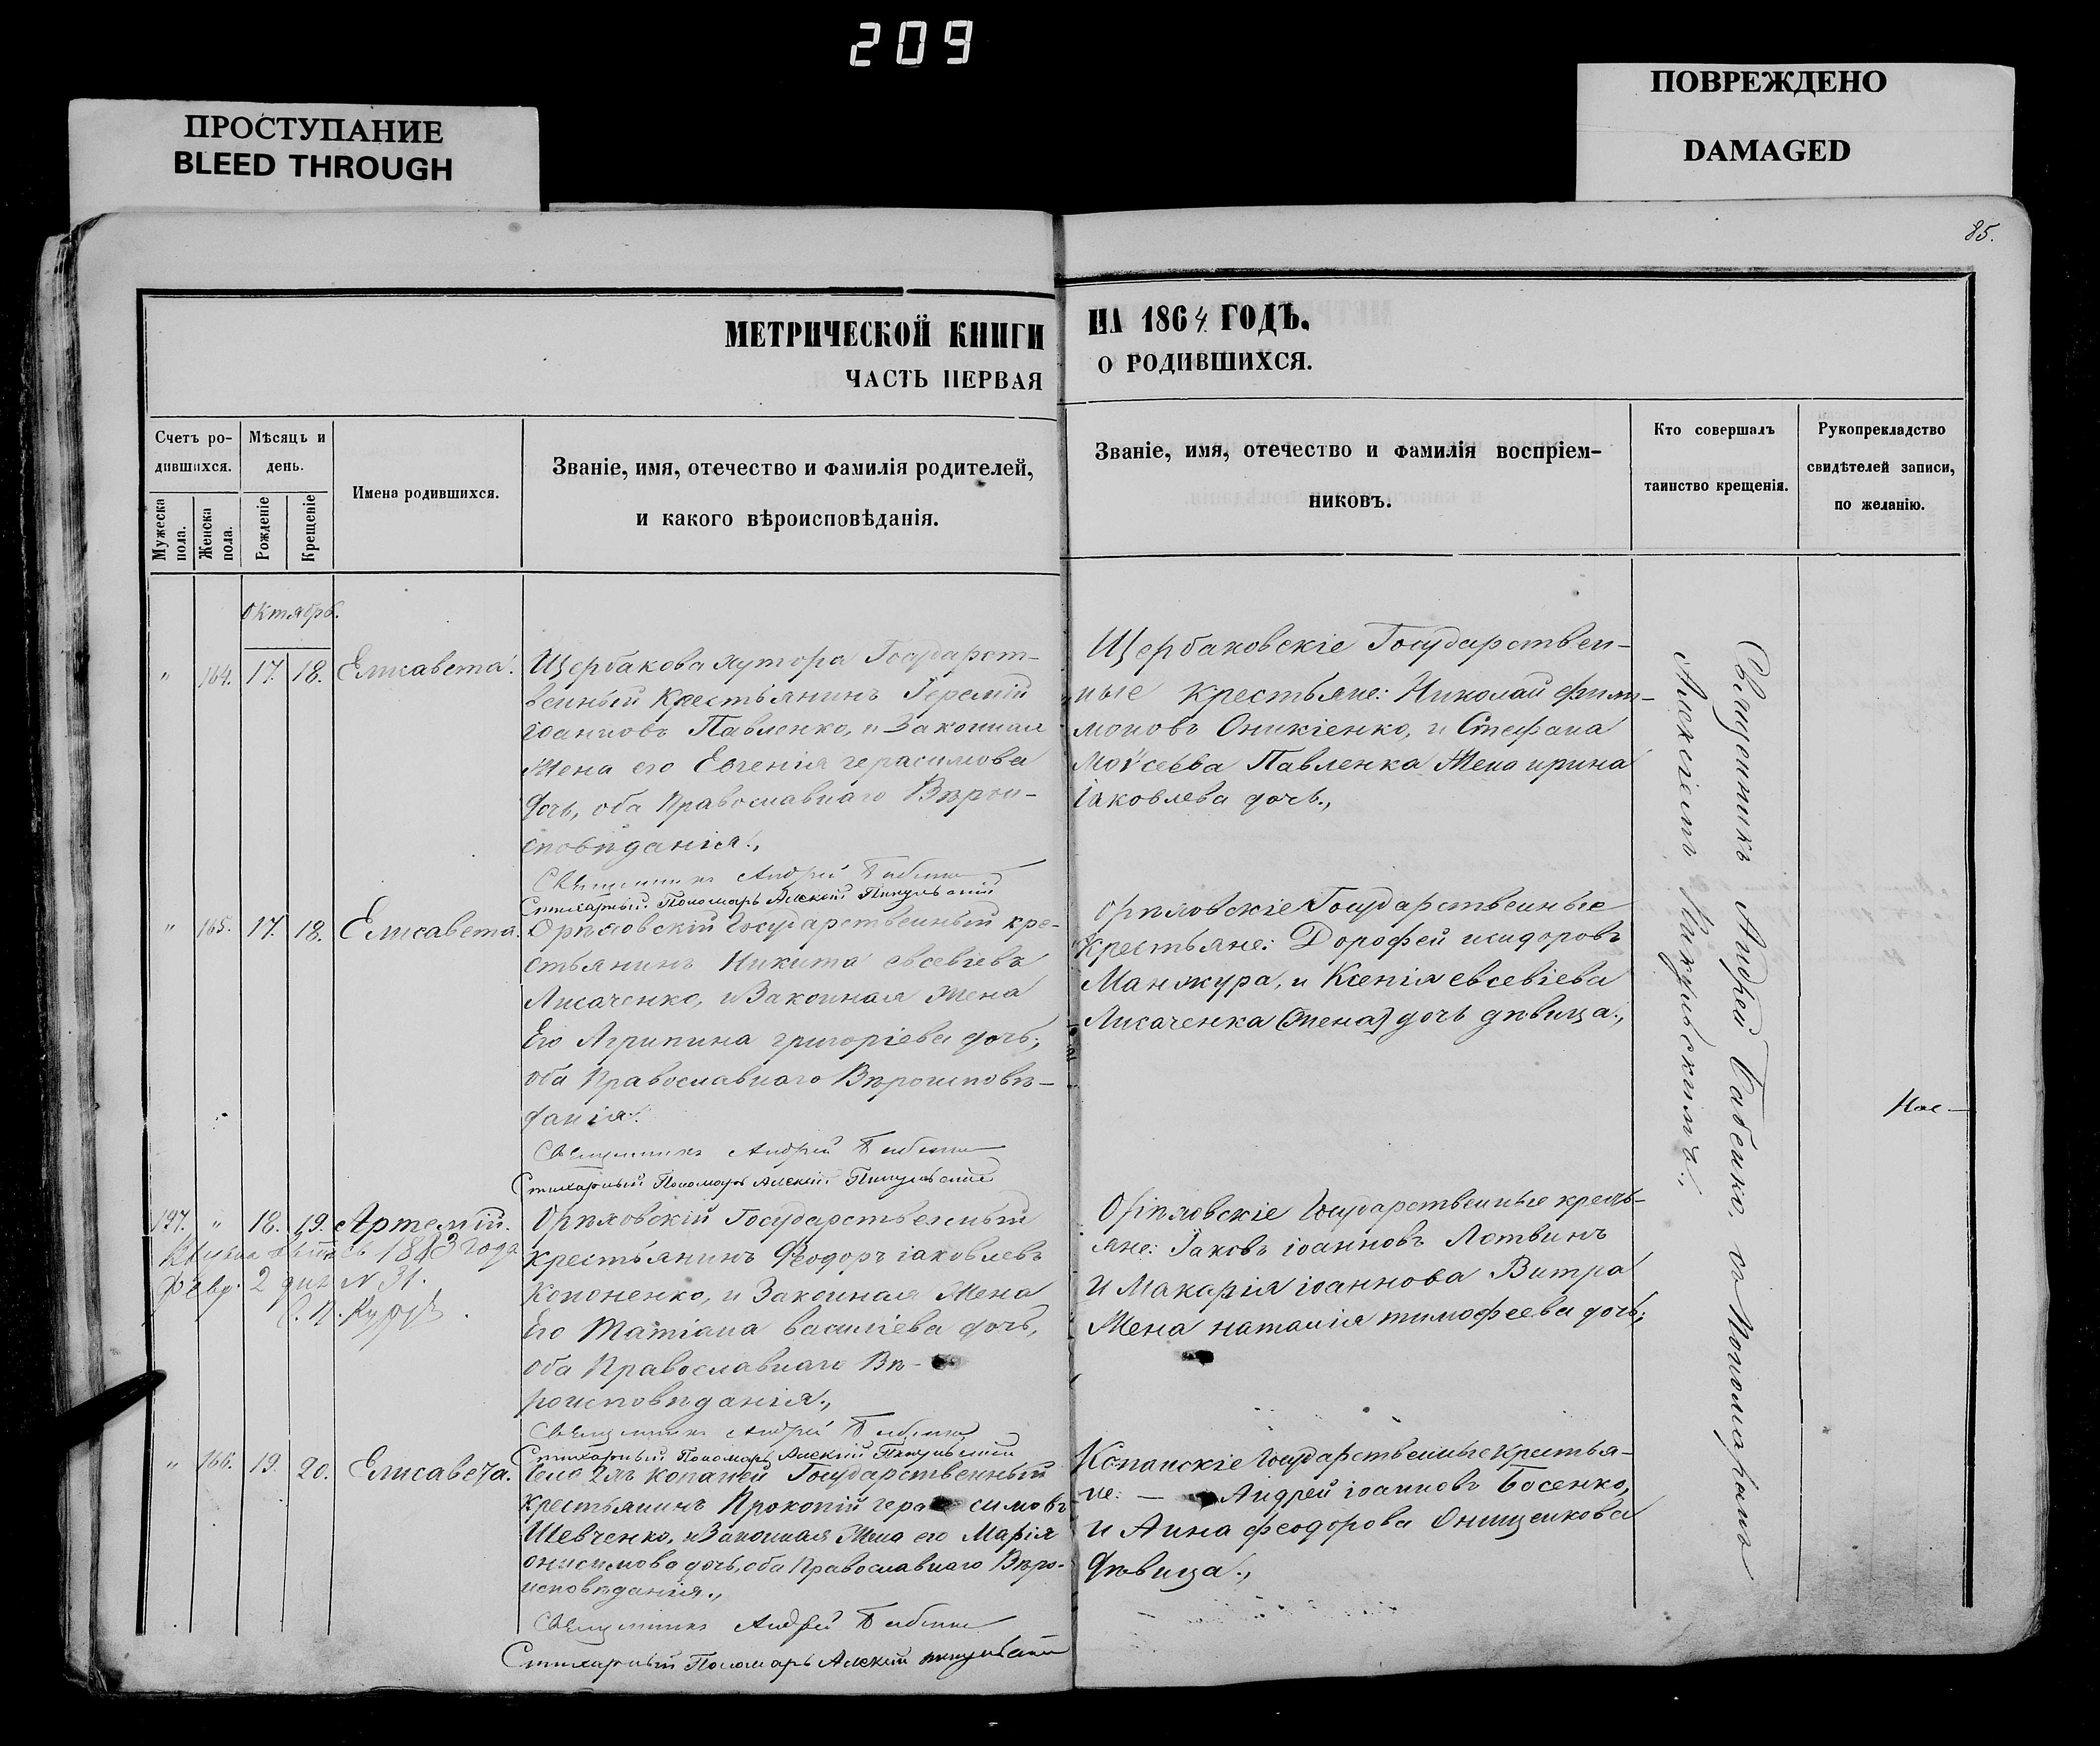 209
ПРОСТУПАНИЕ
BLEED THROUGH
ПОВРЕЖДЕНО
DAMAGED
85.
МЕТРИЧЕСКОЙ КНИГИ НА 1864 ГОДЪ.
ЧАСТЬ ПЕРВАЯ О РОДИВШИХСЯ.
Счетъ ро-
дившихся.
Мужеска пола.
Женска пола.
Мѣсяцъ и
день.
Рожденіе
Крещеніе
Имена родившихся.
Званіе, имя, отечество и фамилія родителей,
и какого вѣроисповѣданія.
Званіе, имя, отечество и фамилія воспріем-
никовъ.
Кто совершалъ
таинство крещенія.
Рукоприкладство
свидѣтелей записи,
по желанію.
Октябрь.
" 164. 17. 18. Елисавета.
Щербакова хутора Государст-
венный Крестьянинъ Іеремій
іоанновъ Павленко, и Законная
Жена его Евгенія герасимова
дочь, оба Православнаго Вѣрои-
сповѣданія.,
Священникъ Андрей
Стихарный Пономарь Алексій Пикульскій
Щербаковскіе Государствен-
ные Крестьяне: Николай фили-
моновъ Оникіенко, и Стефана
Моѵсеева Павленка Жена ирина
іаковлева дочь.,
" 165. 17. 18. Елисавета.
Орѣловскій Государственный кре-
стьянинъ Никита евсевіевъ
Лисаченко, и Законная Жена
Его Агрипина григоріева дочь,
оба Православнаго Вѣроисповѣ-
данія.
Священникъ Андрей
Стихарный Пономарь Алексій Пикульскій
Орѣловскіе Государственные
Крестьяне: Дорофей исидоровъ
Манжура, и Ксенія евсевіева
Лисаченка (Жена) дочь дѣвица.,
197. " 18. 19. Артемій.
1883 года
Февр. 2 дня N 31.
Орѣловскій Государственный
крестьянинъ Феодоръ іаковлевъ
Кононенко, и Законная Жена
Его Татіана василіева дочь,
оба Православнаго Вѣ-
роисповѣданія.,
Священникъ Андрей
Стихарный Пономарь Алексій Пикульскій
Орѣловскіе Государственные кресть-
яне: Іаковъ іоанновъ Лотвинъ
и Макарія іоаннова Витра
Жена наталія тимофеева дочь;
" 166. 19. 20. Елисавета.
Села 2хъ Копаней Государственный
крестьянинъ Прокопій герасимовъ
Шевченко, и Законная Жена его Марія
онисимова дочь, оба Православнаго Вѣро-
исповѣданія.,
Священникъ Андрей
Стихарный Пономарь Алексій Пикульскій
Копанскіе Государственные Крестья-
не: — Андрей іоанновъ Босенко,
и Анна феодорова Онищенкова
дѣвица.,
Священникъ Андрей Бабенко, съ Пономаремъ
Алексіемъ Пикульскимъ.,